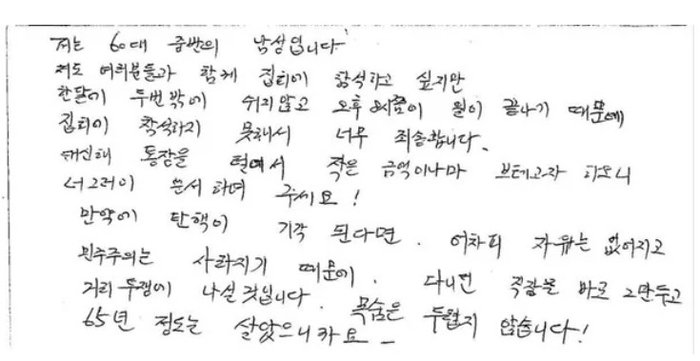 저는 60대 중반의 남성입니다
저도 여러분들과 함께 집회에 참석하고 싶지만
한달에 두번밖에 쉬지않고 오후 8시쯤이 일이 끝나기 때문에
집회에 참석하지 못해서 너무 죄송합니다.
대신해 통장을 털어서 적은 금액이나마 보태고자 하오니
너그러이 용서하여 주세요!
만약에 탄핵이 기각 된다면. 어차피 자유는 없어지고
민주주의는 사라지기 때문에. 다니던 직장을 바로 그만두고
거리투쟁에 나설 것입니다. 목숨은 두렵지 않습니다!
65년 정도는 살았으니까요-